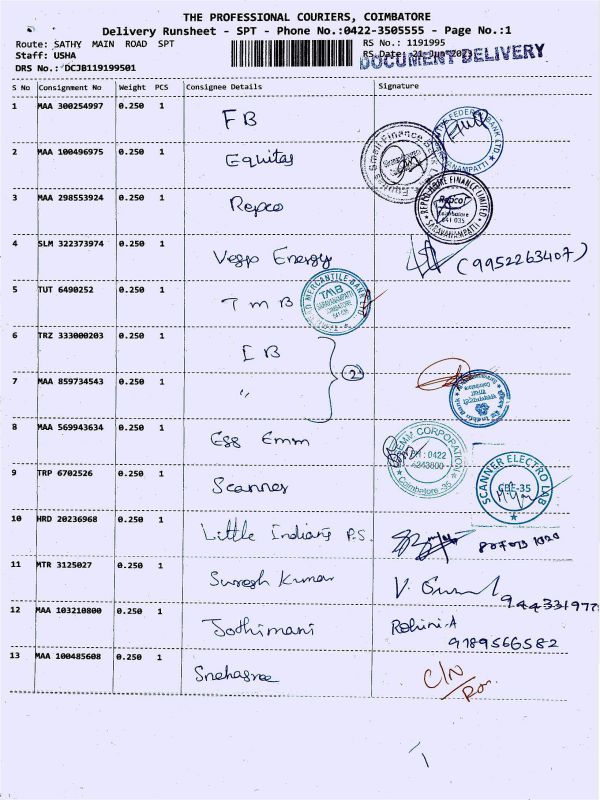 THE PROFESSIONAL COURIERS, COIMBATORE
Delivery Runsheet - SPT - Phone No.:0422-3505555 - Page No.:1
Route: SATHY MAIN ROAD SPT
RS No.: 1191995
Staff: USHA
RS Date: 21-Jun-2023
DOCUMENT DELIVERY
DRS No.: DCJB119199501
S No Consignment No Weight PCS Consignee Details Signature
1 MAA 300254997 0.250 1 FB
2 MAA 100496975 0.250 1 Equitas
3 MAA 298553924 0.250 1 Repco
REPCO HOME FINANCE LIMITED
Repco
Coimbatore
641 035
SARAVANAMPATTI
4 SLM 322373974 0.250 1 Veggo Energy (9952263407)
5 TUT 6490252 0.250 1 TMB
MERCANTILE BANK LTD
TMB
SARAVANAMPATTI
COIMBATORE
6 TRZ 333000203 0.250 1 IB
2
7 MAA 859734543 0.250 1 "
8 MAA 569943634 0.250 1 Egg Emm
EMM CORPORATION
PH : 0422
Coimbatore -35
9 TRP 6702526 0.250 1 Scanner
SCANNER ELECTRO LAB
CBE-35
10 HRD 20236968 0.250 1 Little Indians P.S.
11 MTR 3125027 0.250 1 Suresh Kumar
12 MAA 103210800 0.250 1 Jothimani Rohini.A
9189566582
13 MAA 100485608 0.250 1 Snehasree C/N